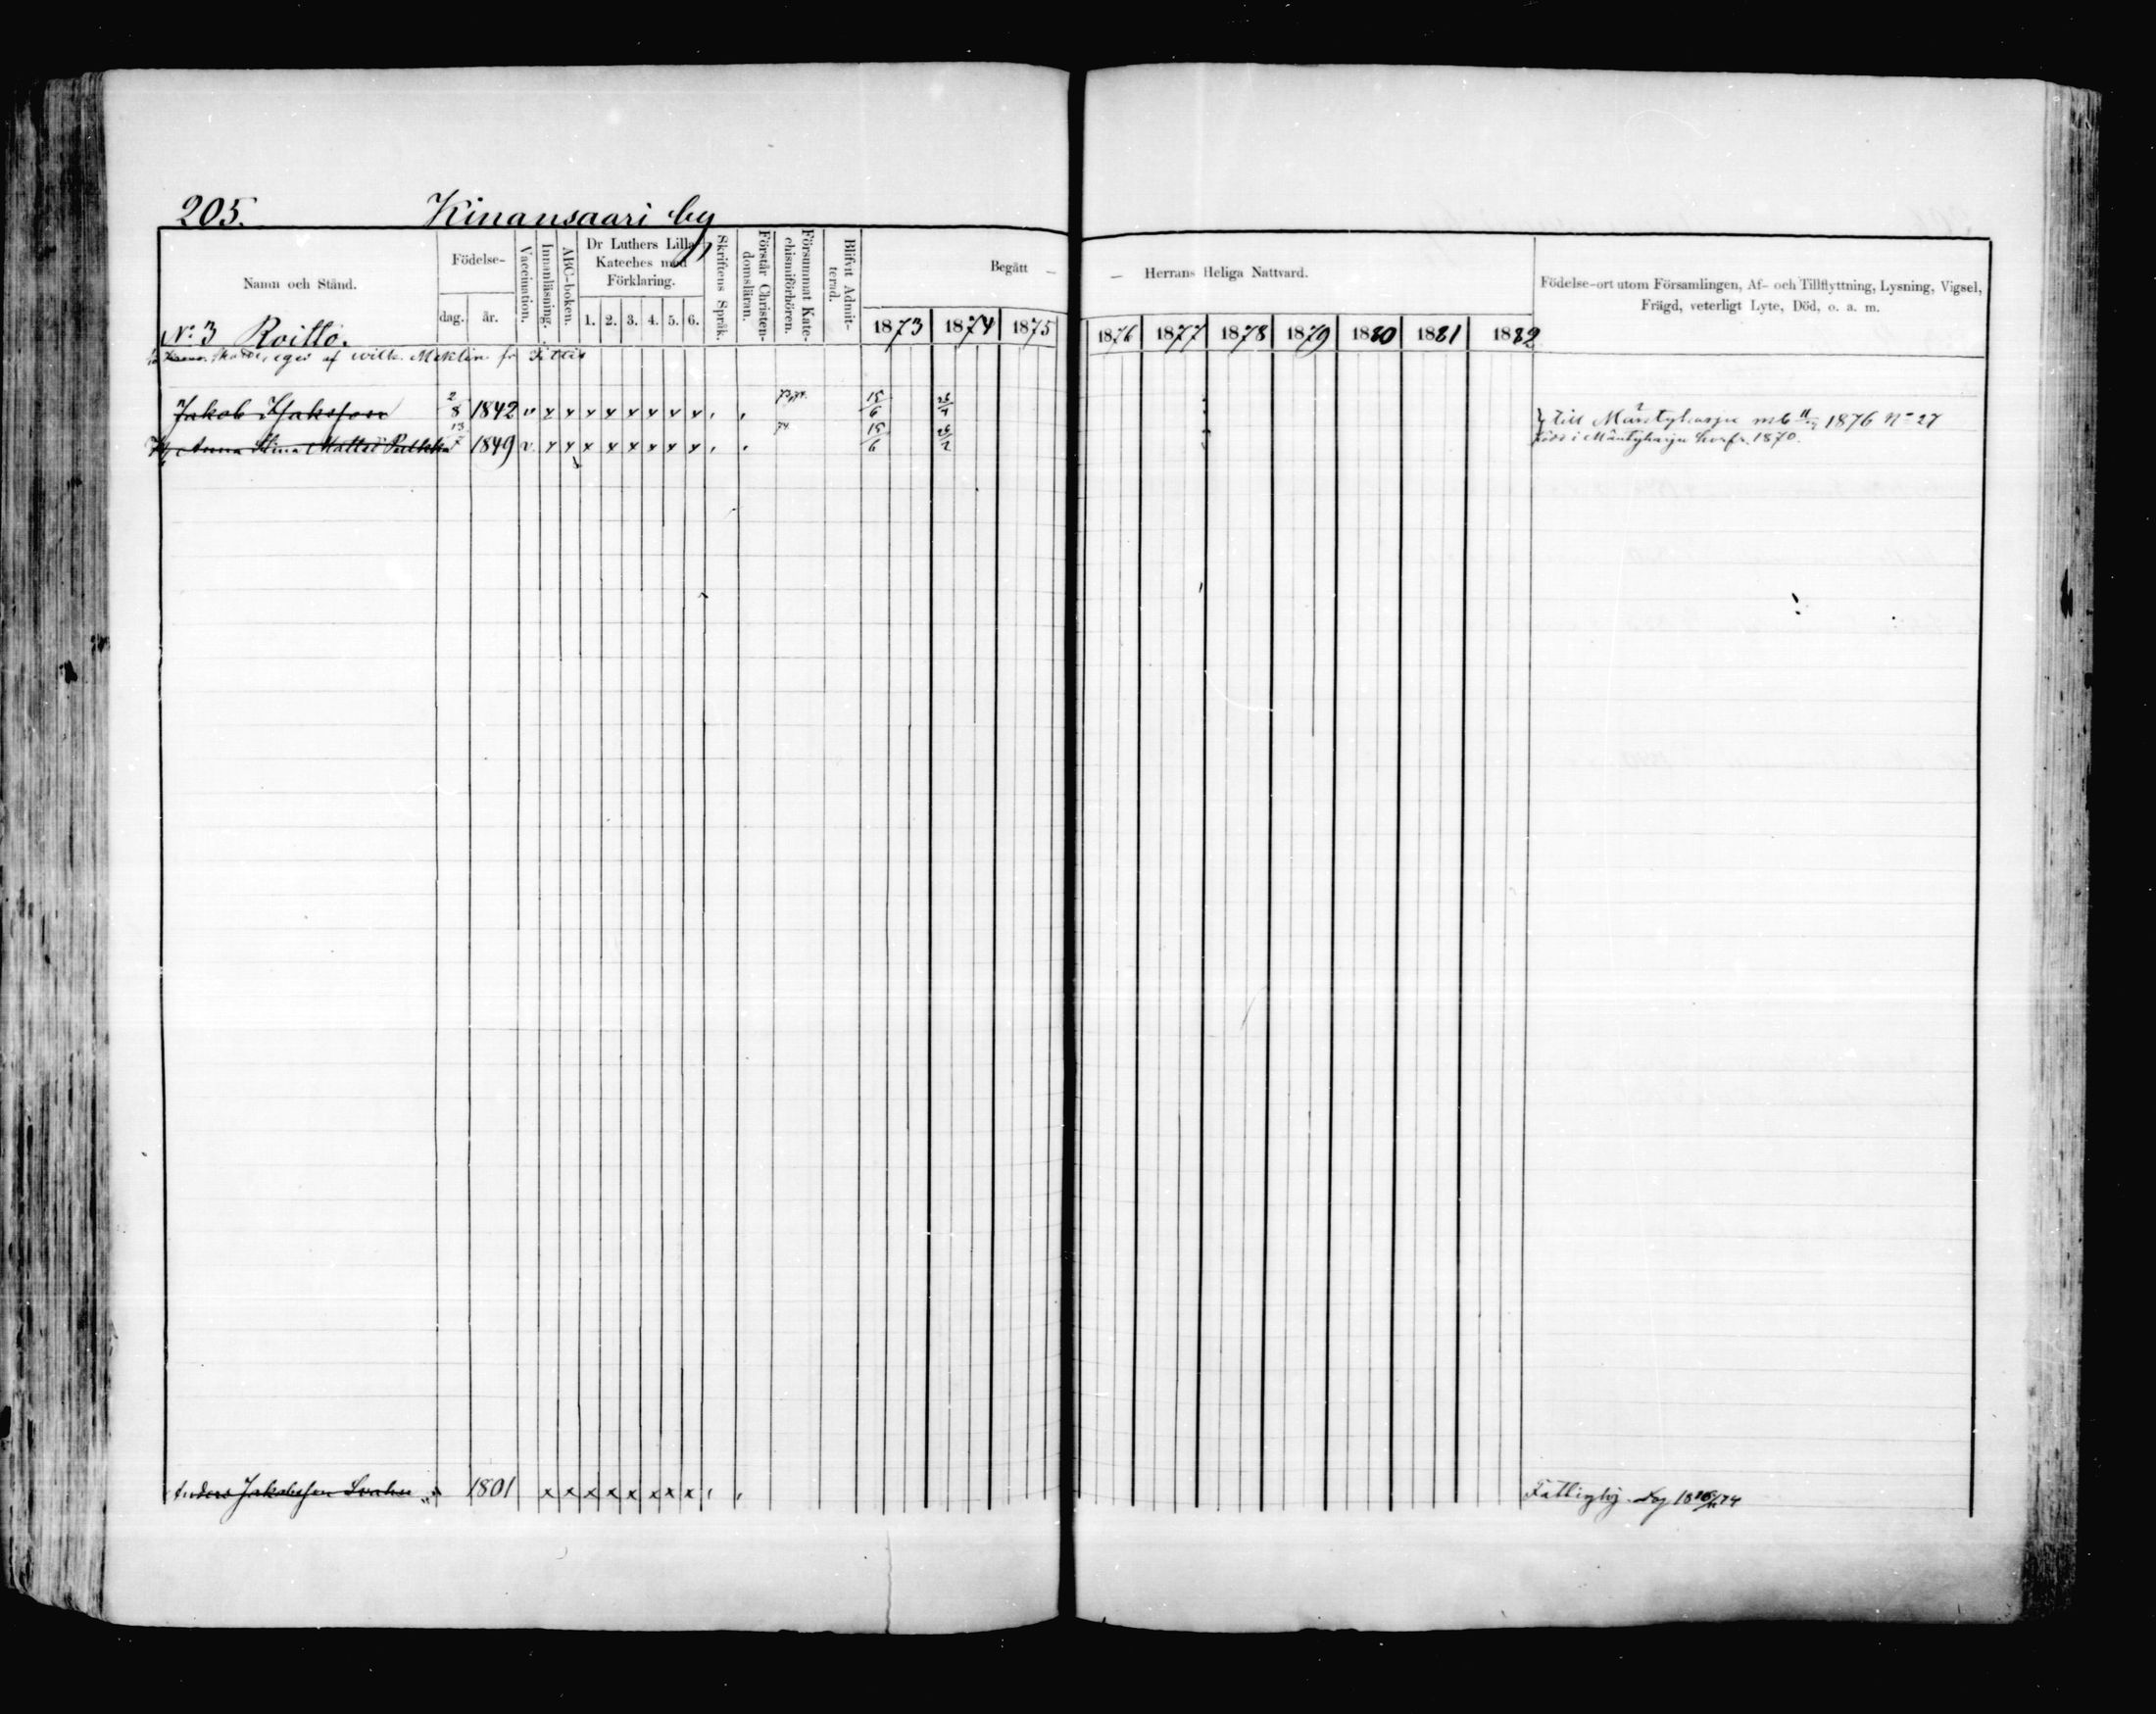 205. Kinansaari by
Namn och Stånd.
Födelse-
dag. år.
Vaccination.
Innanläsning.
ABC-boken.
Dr Luthers Lilla
Kateches med
Förklaring.
1. 2. 3. 4. 5. 6.
Skriftens Språk.
Förstår Christen-
domsläran.
Försummat Kate-
chismiförhören.
Blifvit Admit-
terad.
Begått —
1873 1874 1875
— Herrans Heliga Nattvard.
1876 1877 1878 1879 1880 1881 1882
Födelse-ort utom Församlingen, Af- och Tillflyttning, Lysning, Vigsel,
Frägd, veterligt Lyte, Död, o. a. m.
No 3 Roitto.
eges af Wilh. Meklin fr Sittis
Jakob Isaksson 2/8 1842 v x x x x x x x x , , 73,74. 15/6 26/7 Till Mäntyharju mb 1876 No 27
Anna Stina Mattsd Pulkka 13/7 1849 v x x x x x x x x , , 74 15/6 26/7 född i Mäntyharju 1870.
Anders Jakobsson Svahn 1801 x x x x x x x x , , Fattighj.